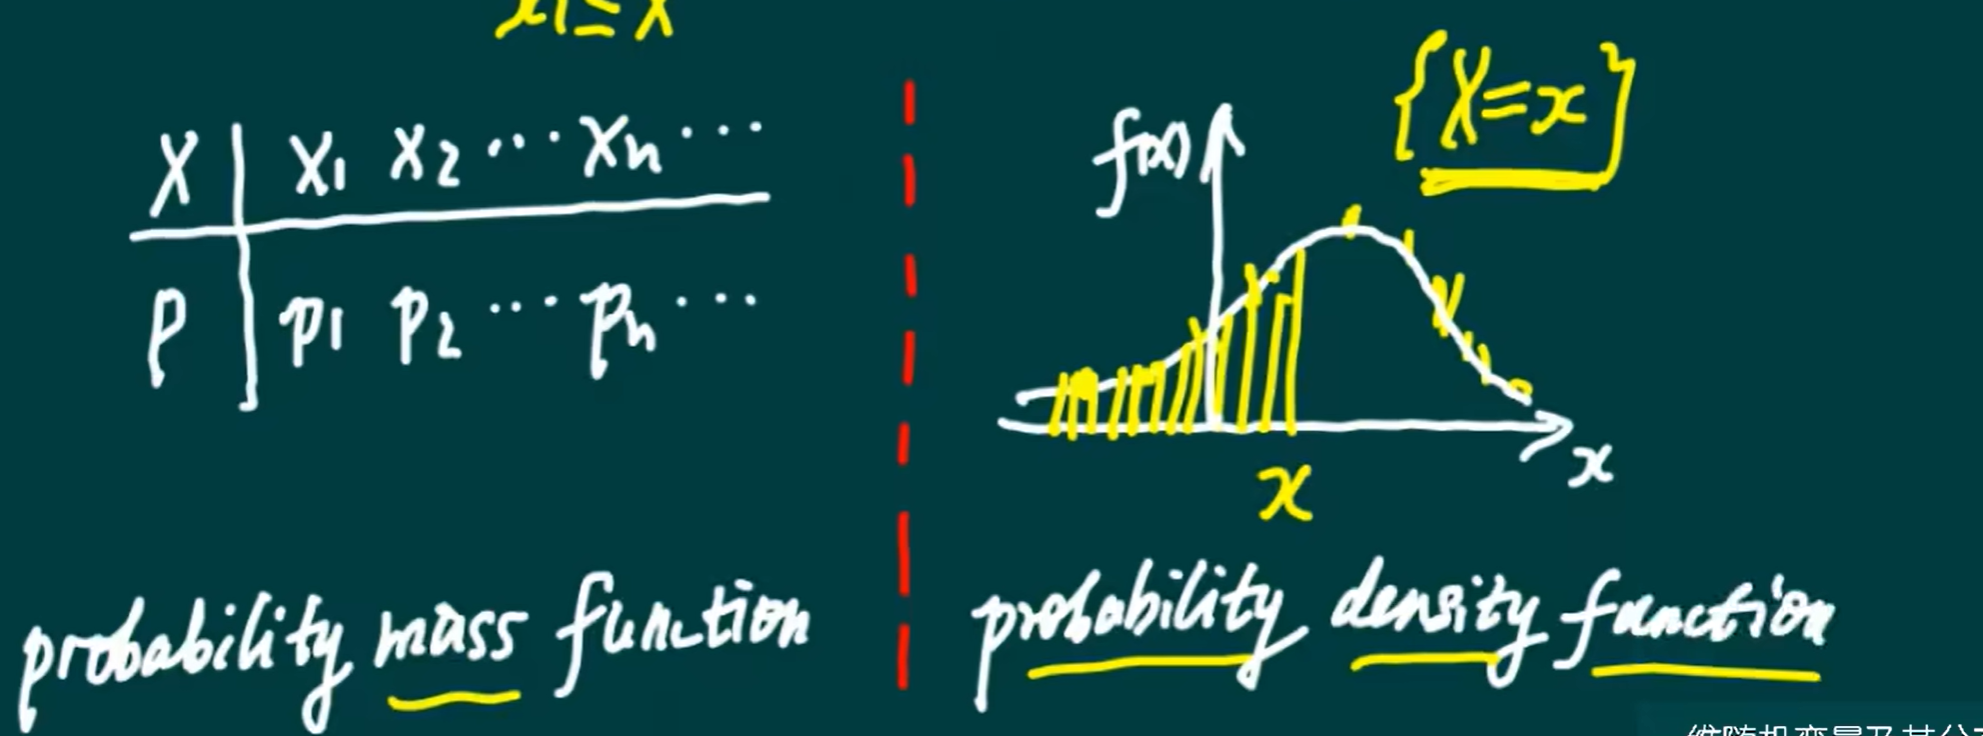 X x1 x2 ... xn ...
P p1 p2 ... pn ...
probability mass function
{X=x}
f(x)
x
x
probability density function
维随机变量及其分